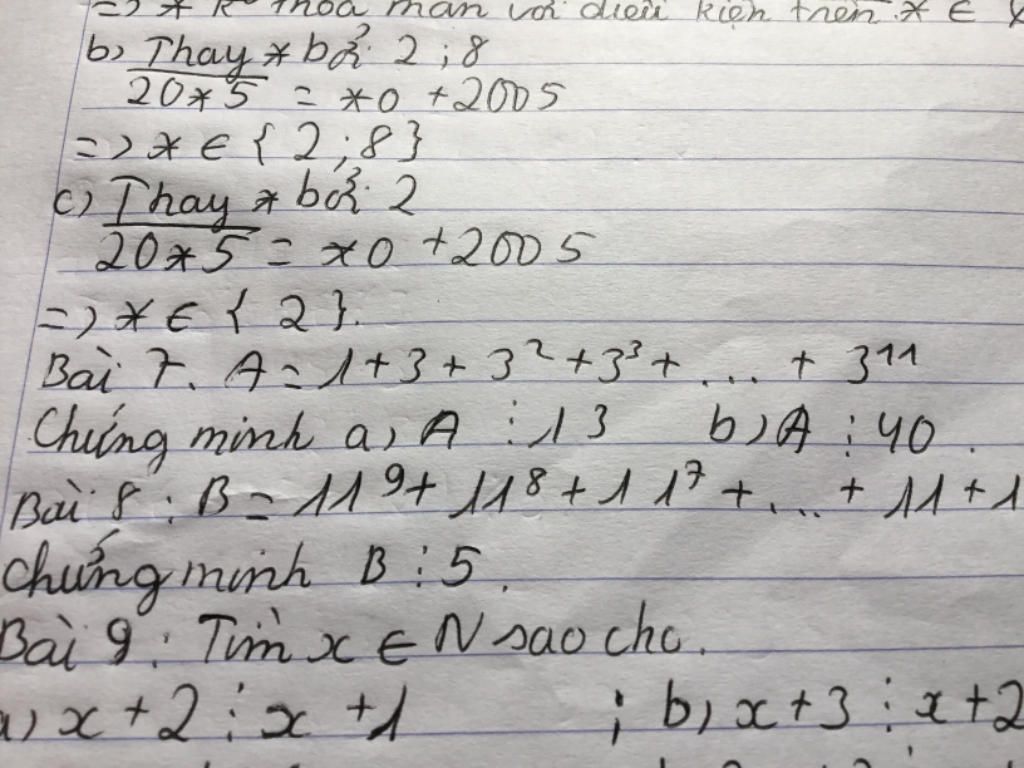 => * k thỏa mãn với điều kiện trên * ∈
b) Thay * bởi 2 ; 8
20*5 = *0 + 2005
=> * ∈ { 2 ; 8 }
c) Thay * bởi 2
20*5 = *0 + 2005
=> * ∈ { 2 }.
Bài 7. A = 1 + 3 + 3² + 3³ + .... + 3¹¹
Chứng minh a) A ⋮ 13 b) A ⋮ 40.
Bài 8 : B = 11⁹ + 11⁸ + 11⁷ + .... + 11 + 1
Chứng minh B ⋮ 5.
Bài 9 : Tìm x ∈ N sao cho.
a) x + 2 ⋮ x + 1 ; b) x + 3 ⋮ x + 2